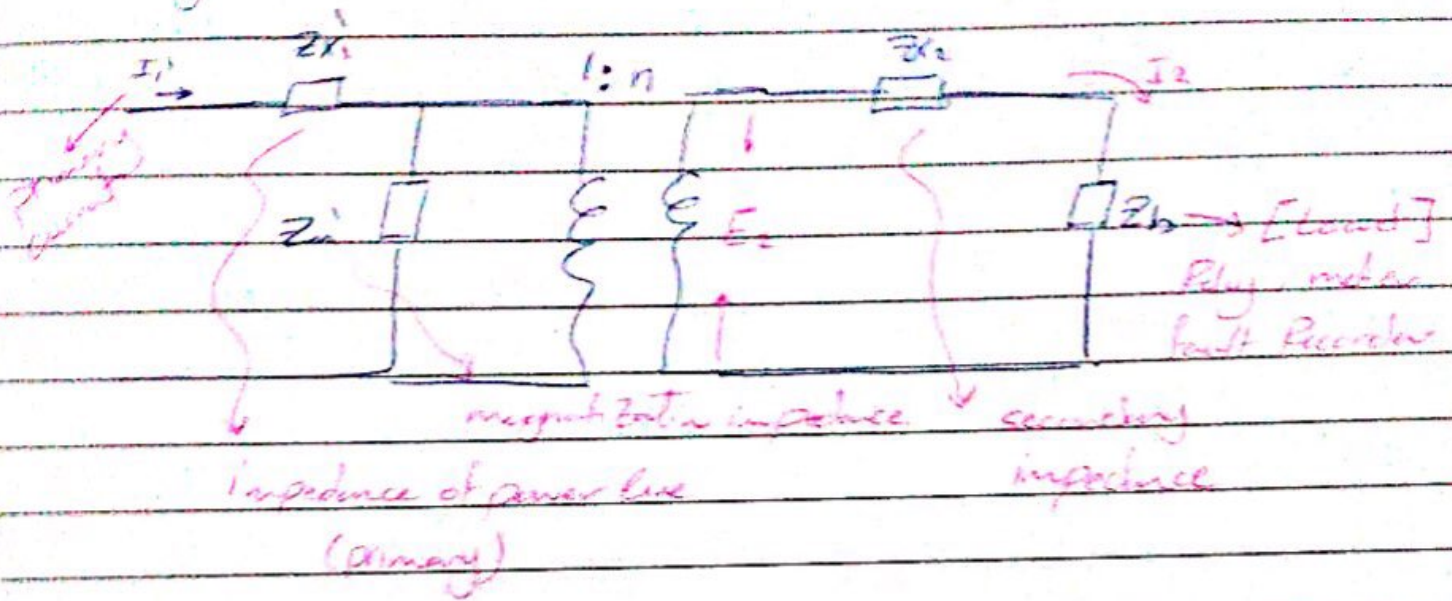 I₁' → Zx₁' 1:n Zx₂ I₂
Zm' E₂ Zb → [Load]
Relay, meter
fault Recorder
magnetization impedance secondary
impedance of power line impedance
(primary)